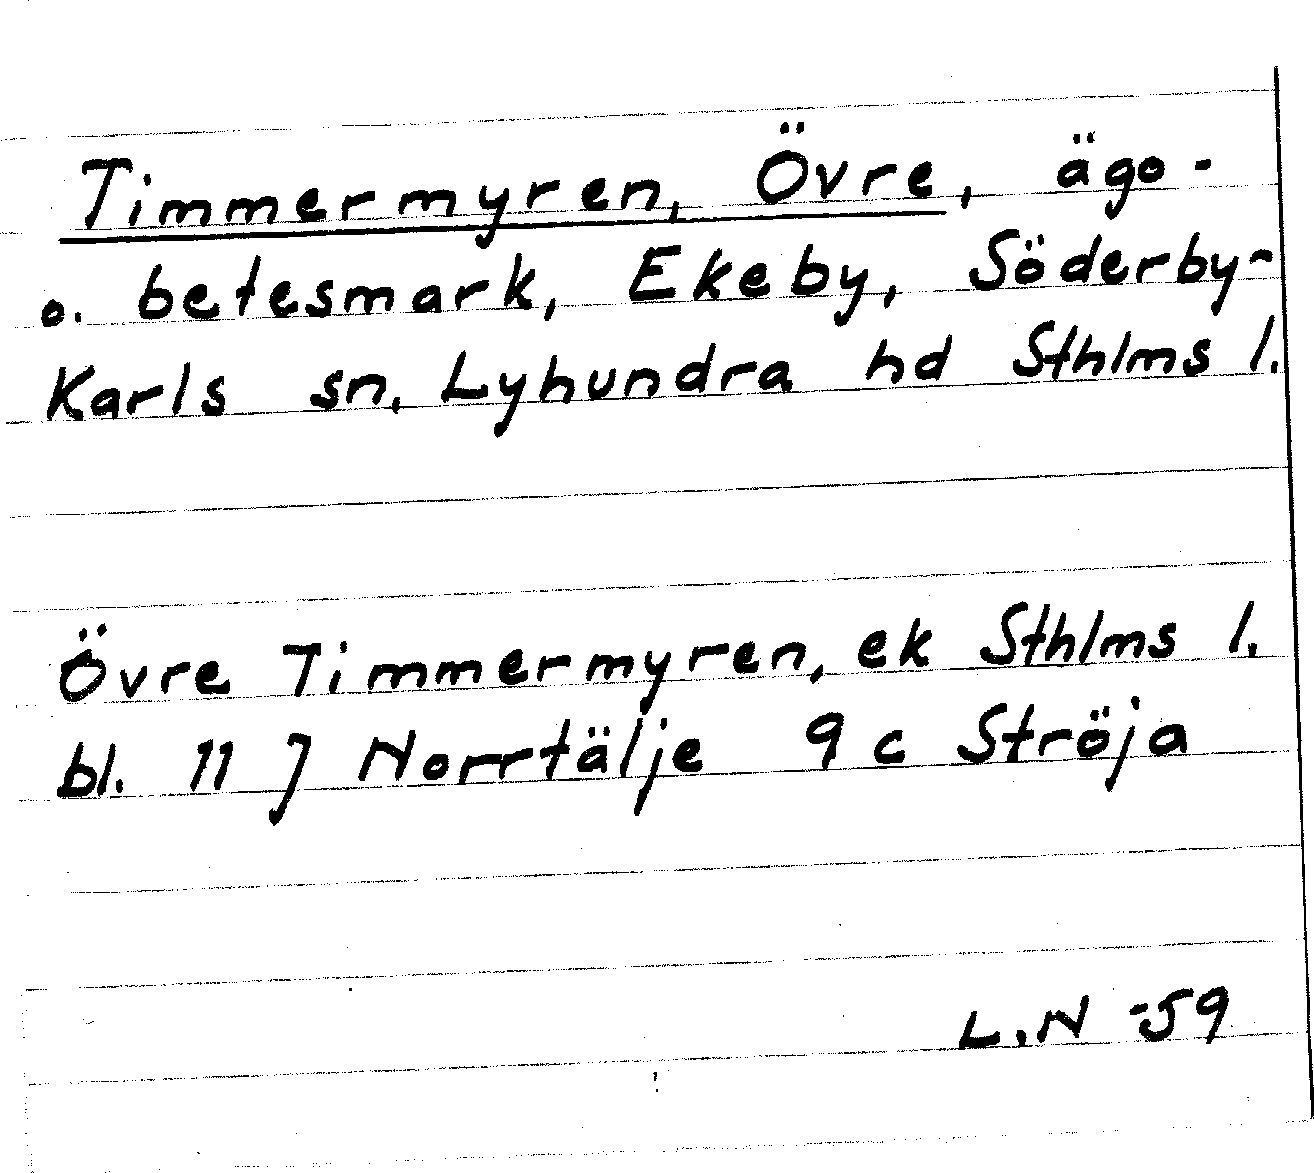 Timmermyren, Övre, ägo-
o. betesmark, Ekeby, Söderby-
Karls sn, Lyhundra hd Sthlms l.
Övre Timmermyren, ek Sthlms l.
bl. 11 J Norrtälje 9 c Ströja
L.N -59